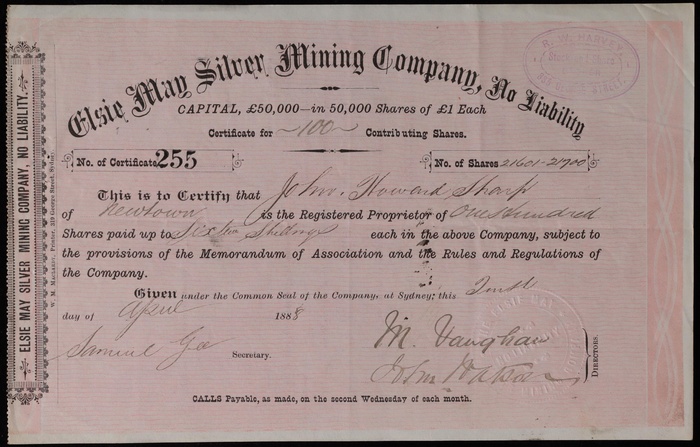 Elsie May Silver Mining Company, No Liability
R. W. HARVEY,
CAPITAL, £50,000—in 50,000 Shares of £1 Each
Certificate for ~100~ Contributing Shares.
No. of Certificate 255
No. of Shares 21601-21700
This is to Certify that John Howard Sharp
of Newtown is the Registered Proprietor of One Hundred
Shares paid up to Shillings each in the above Company, subject to
the provisions of the Memorandum of Association and the Rules and Regulations of
the Company.
Given under the Common Seal of the Company, at Sydney, this
day of April 1888
Samuel Gee Secretary.
M. Vaughan
John Watson
DIRECTORS.
CALLS Payable, as made, on the second Wednesday of each month.
ELSIE MAY SILVER MINING COMPANY, NO LIABILITY.
Printer, George Street, Sydney
ELSIE MAY